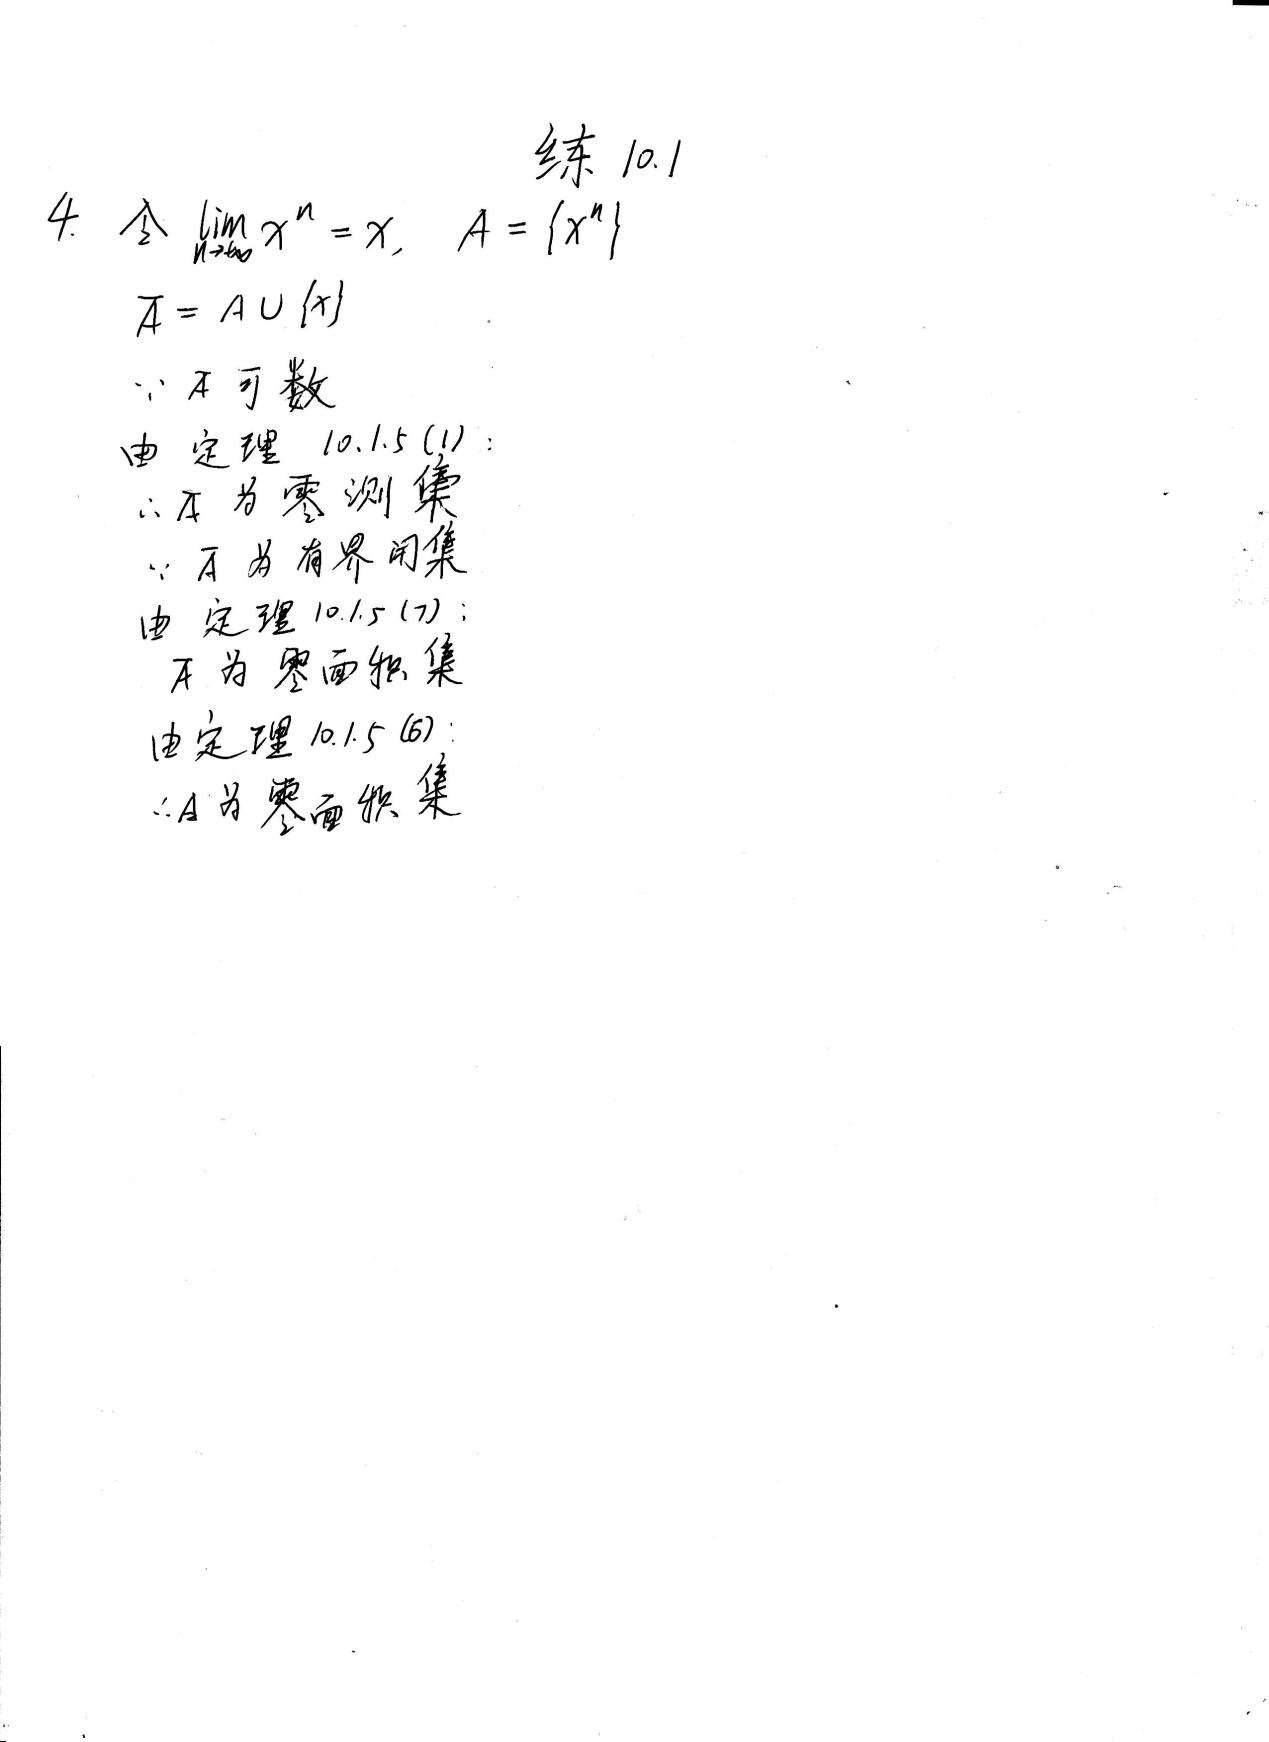 练 10.1
4. 令 lim_{n→∞} xⁿ = x, A = {xⁿ}
A̅ = A ∪ {x}
∵ A̅ 可数
由 定理 10.1.5 (1) :
∴ A̅ 为 零测集
∵ A̅ 为 有界闭集
由 定理 10.1.5 (7) :
A̅ 为 零面积集
由定理 10.1.5 (6) :
∴ A 为 零面积集